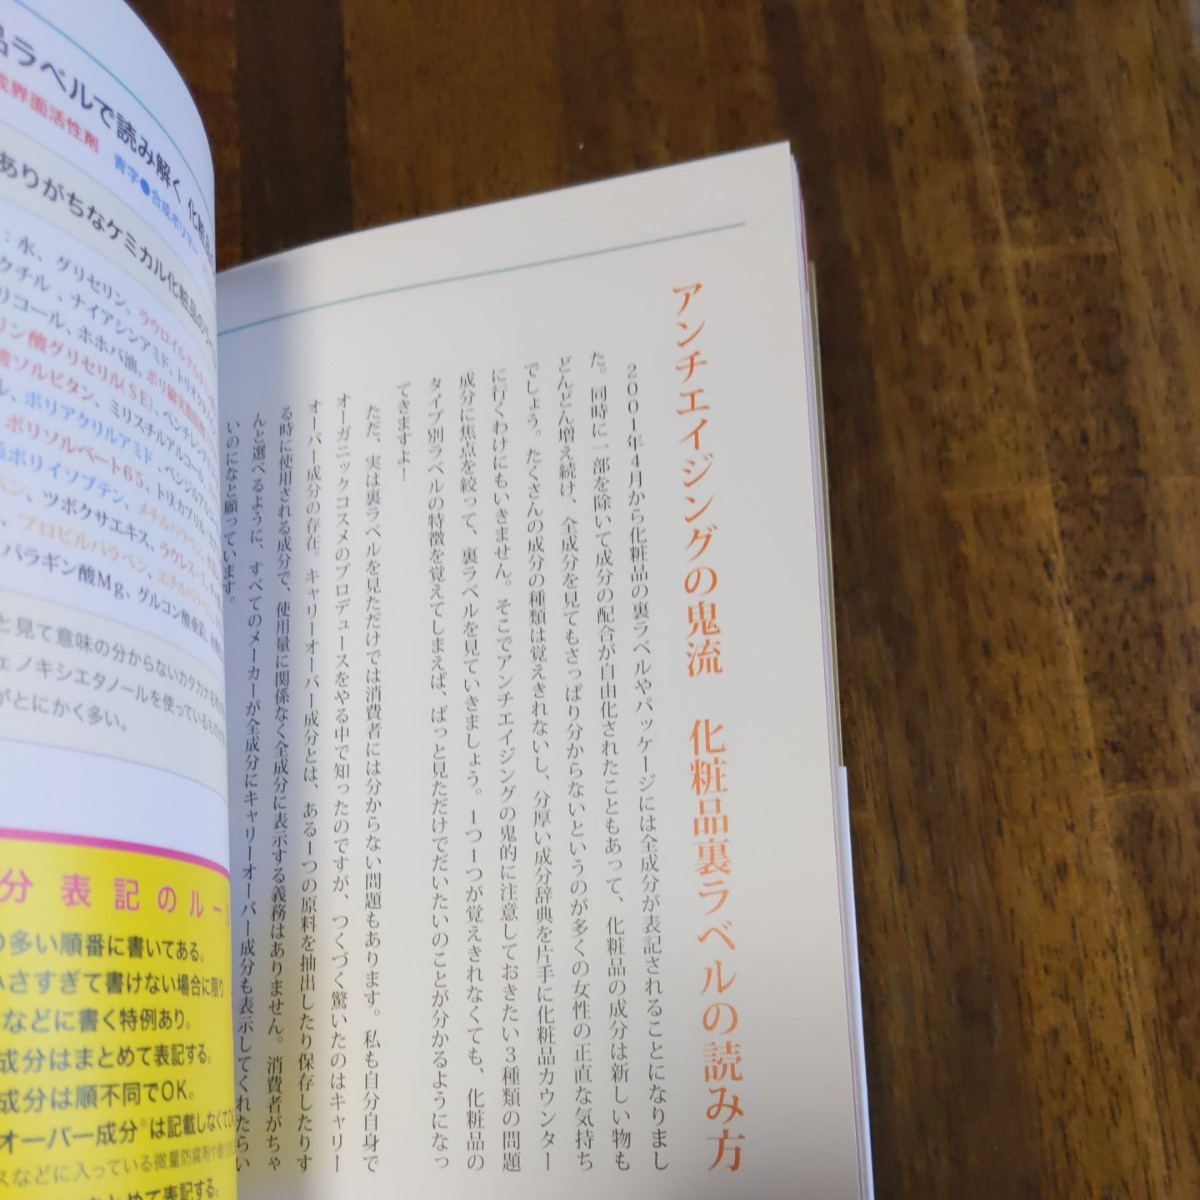 アンチエイジングの鬼流　化粧品裏ラベルの読み方
2001年4月から化粧品の裏ラベルやパッケージには全成分が表記されることになりまし
た。同時に一部を除いて成分の配合が自由化されたこともあって、化粧品の成分は新しい物も
どんどん増え続け、全成分を見てもさっぱり分からないというのが多くの女性の正直な気持ち
でしょう。たくさんの成分の種類は覚えきれないし、分厚い成分辞典を片手に化粧品カウンター
に行くわけにもいきません。そこでアンチエイジングの鬼的に注意しておきたい3種類の問題
成分に焦点を絞って、裏ラベルを見ていきましょう。1つ1つが覚えきれなくても、化粧品の
タイプ別ラベルの特徴を覚えてしまえば、ぱっと見ただけでだいたいのことが分かるようになっ
てきますよ！
ただ、実は裏ラベルを見ただけでは消費者には分からない問題もあります。私も自分自身で
オーガニックコスメのプロデュースをやる中で知ったのですが、つくづく驚いたのはキャリー
オーバー成分の存在。キャリーオーバー成分とは、ある1つの原料を抽出したり保存したりす
る時に使用される成分で、使用量に関係なく全成分に表示する義務はありません。消費者がちゃ
んと選べるように、すべてのメーカーが全成分にキャリーオーバー成分も表示してくれたらい
いのになと願っています。
品ラベルで読み解く 化粧品
成界面活性剤　青字●合成ポリマー
ありがちなケミカル化粧品の
：水、グリセリン、ラウロイルグル
クチル、ナイアシンアミド、トリオクタ
リコール、ホホバ油、ポリ
リン酸グリセリル(SE)、ペンチレング
酸ソルビタン、ミリスチルアルコール、
ル、ポリアクリルアミド、ベンジルアル
ポリソルベート65、トリカプリル、
ポリイソブテン、メチルパラベン、
ベン、ツボクサエキス、ラウレス-7、
、プロピルパラベン、エチルパラベン、
パラギン酸Mg、グルコン酸亜鉛、
と見て意味の分からないカタカナ
ェノキシエタノールを使っているもの
がとにかく多い。
分表記のルー
の多い順番に書いてある。
小さすぎて書けない場合に限り
などに書く特例あり。
成分はまとめて表記する。
成分は順不同でOK。
オーバー成分※は記載しなくてOK
スなどに入っている微量防腐剤や
まとめて表記する。